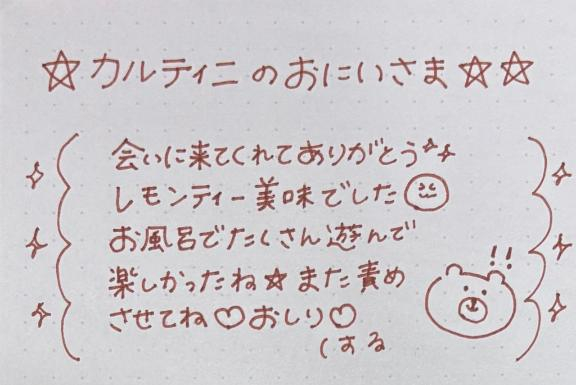 ☆カルティニのおにいさま☆☆
会いに来てくれてありがとう
レモンティー美味でした
お風呂でたくさん遊んで
楽しかったね☆また責め
させてね♡おしり♡
(する
!!